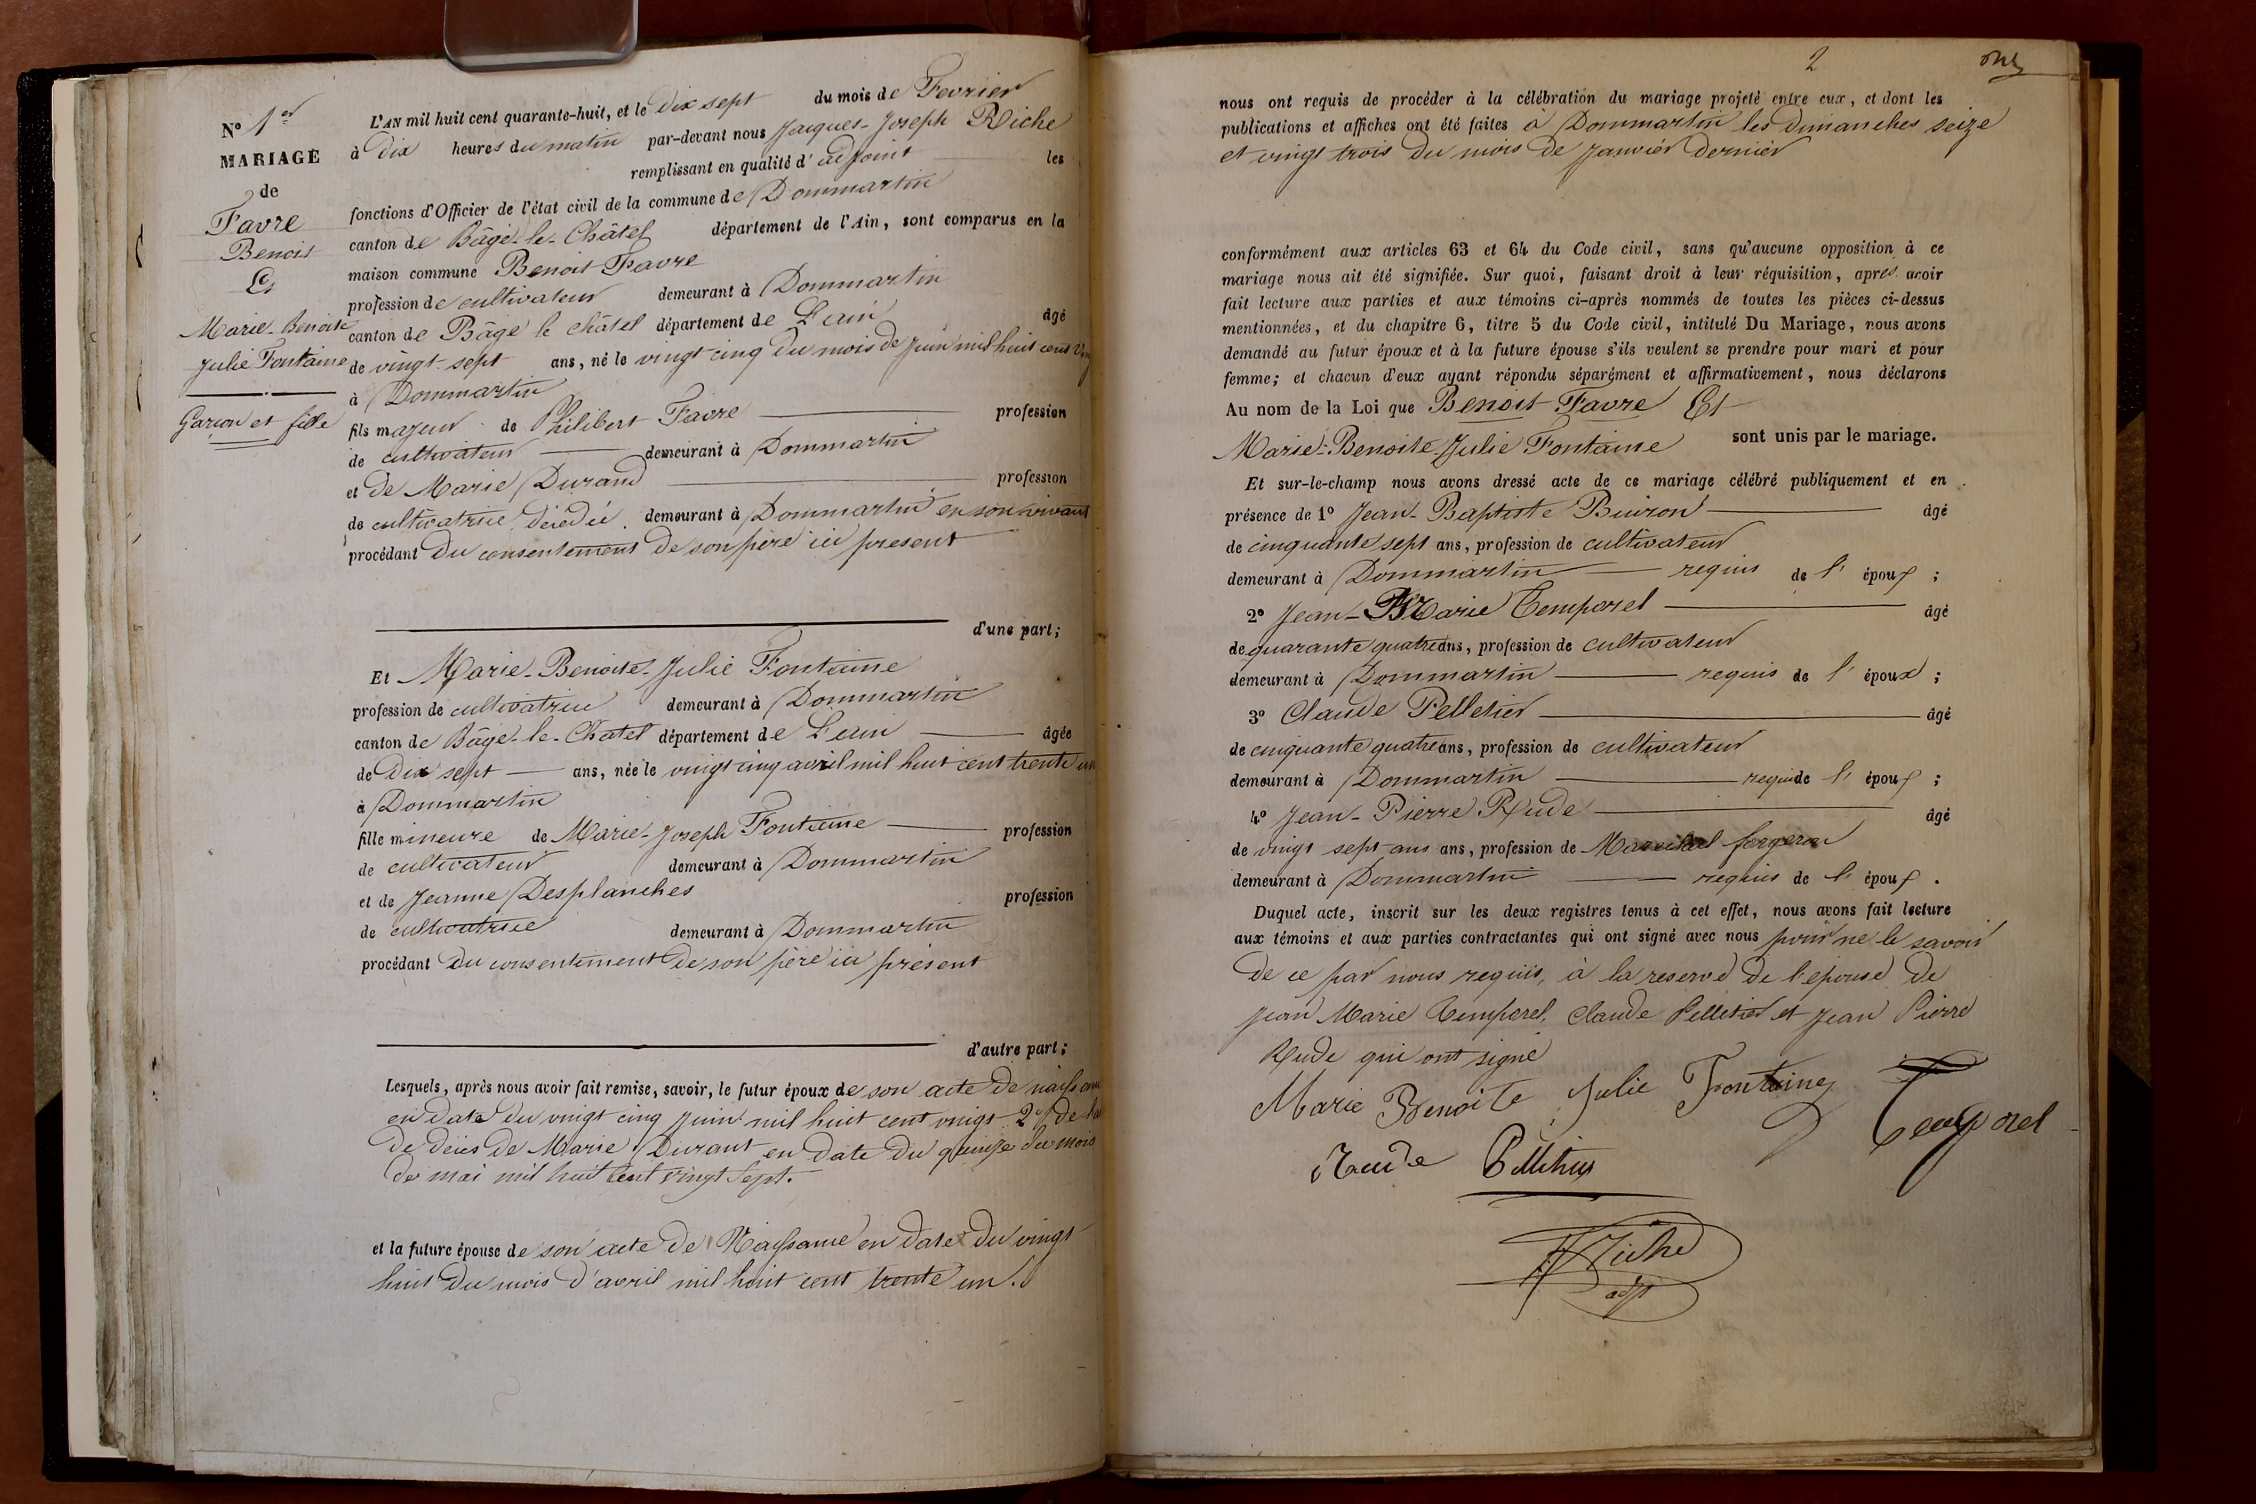 N° 1er
MARIAGE
de
Favre
Benoit
Et
Marie-Benoite
Julie Fontaine
Garçon et fille
L'AN mil huit cent quarante-huit, et le dix sept du mois de Fevrier
à dix heures du matin par-devant nous Jacques-Joseph Riche
remplissant en qualité d'adjoint les
fonctions d'Officier de l'état civil de la commune de Dommartin
canton de Bâgé-le-Châtel département de l'Ain, sont comparus en la
maison commune Benoit Favre
profession de cultivateur demeurant à Dommartin
canton de Bâgé le châtel département de L'ain âgé
de vingt-sept ans, né le vingt cinq du mois de Juin mil huit cent
à Dommartin
fils majeur de Philibert Favre profession
de cultivateur demeurant à Dommartin
et de Marie Durand profession
de cultivatrice décédée demeurant à Dommartin en son vivant
procédant du consentement de son père ici present
d'une part;
Et Marie-Benoite-Julie Fontaine
profession de cultivatrice demeurant à Dommartin
canton de Bâgé-le-Chatel département de L'ain âgée
de dix sept ans, née le vingt cinq avril mil huit cent trente un
à Dommartin
fille mineure de Marie-Joseph Fontaine profession
de cultivateur demeurant à Dommartin
et de Jeanne Desplanches profession
de cultivatrice demeurant à Dommartin
procédant du consentement de son père ici présent
d'autre part;
Lesquels, après nous avoir fait remise, savoir, le futur époux de son acte de naissance
en date du vingt cinq Juin mil huit cent vingt 2° de
de décès de Marie Durant en date du quinze du mois
de mai mil huit cent vingt sept.
et la future épouse de son acte de Naissance en date du vingt
huit du mois d'avril mil huit cent trente un.
2
nous ont requis de procéder à la célébration du mariage projeté entre eux, et dont les
publications et affiches ont été faites à Dommartin les dimanches seize
et vingt trois du mois de Janvier dernier
conformément aux articles 63 et 64 du Code civil, sans qu'aucune opposition à ce
mariage nous ait été signifiée. Sur quoi, faisant droit à leur réquisition, après avoir
fait lecture aux parties et aux témoins ci-après nommés de toutes les pièces ci-dessus
mentionnées, et du chapitre 6, titre 5 du Code civil, intitulé Du Mariage, nous avons
demandé au futur époux et à la future épouse s'ils veulent se prendre pour mari et pour
femme; et chacun d'eux ayant répondu séparément et affirmativement, nous déclarons
Au nom de la Loi que Benoit Favre Et
Marie-Benoite-Julie Fontaine sont unis par le mariage.
Et sur-le-champ nous avons dressé acte de ce mariage célébré publiquement et en
présence de 1° Jean-Baptiste Buiron âgé
de cinquante sept ans, profession de cultivateur
demeurant à Dommartin requis de l'époux;
2° Jean-Marie Temporel âgé
de quarante quatre ans, profession de cultivateur
demeurant à Dommartin requis de l'époux;
3° Claude Pelletier âgé
de cinquante quatre ans, profession de cultivateur
demeurant à Dommartin requis de l'époux;
4° Jean-Pierre Rude âgé
de vingt sept ans ans, profession de Marechal forgeron
demeurant à Dommartin requis de l'époux.
Duquel acte, inscrit sur les deux registres tenus à cet effet, nous avons fait lecture
aux témoins et aux parties contractantes qui ont signé avec nous pour ne le savoir
de ce par nous requis, à la reserve de l'epouse de
Jean Marie Temporel, Claude Pelletier et Jean Pierre
Rude qui ont signé
Marie Benoite Julie Fontaine Temporel
Rude Pelletier
Riche
adjt